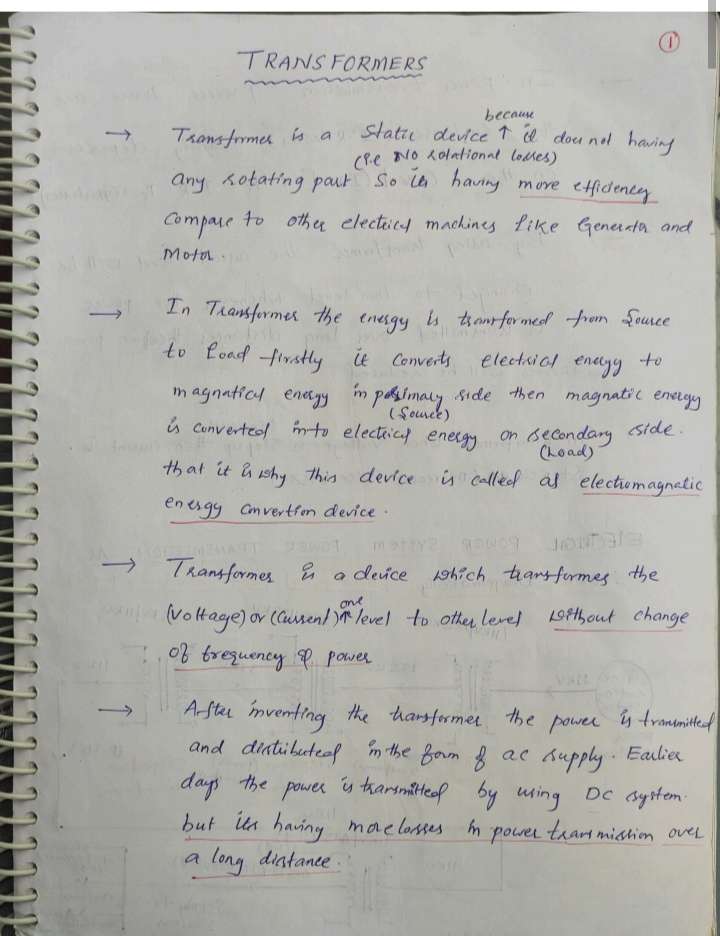 1
TRANSFORMERS
→ Transformer is a static device ↑ because it does not having
(i.e No rotational losses)
any rotating part so its having more efficiency
compare to other electrical machines like Generator and
Motor.
→ In Transformer the energy is transformed from Source
to load firstly it converts electrical energy to
magnatical energy in primary side then magnatic energy
(Source)
is converted into electrical energy on secondary side.
(Load)
that it is why this device is called as electromagnatic
energy convertion device.
→ Transformer is a device which transformes the
(Voltage) or (Current) ↑ one level to other level without change
of frequency & power
→ After inventing the transformer the power is transmitted
and distributed in the form of ac supply. Earlier
days the power is transmitted by using DC system.
but its having more losses in power transmission over
a long distance.